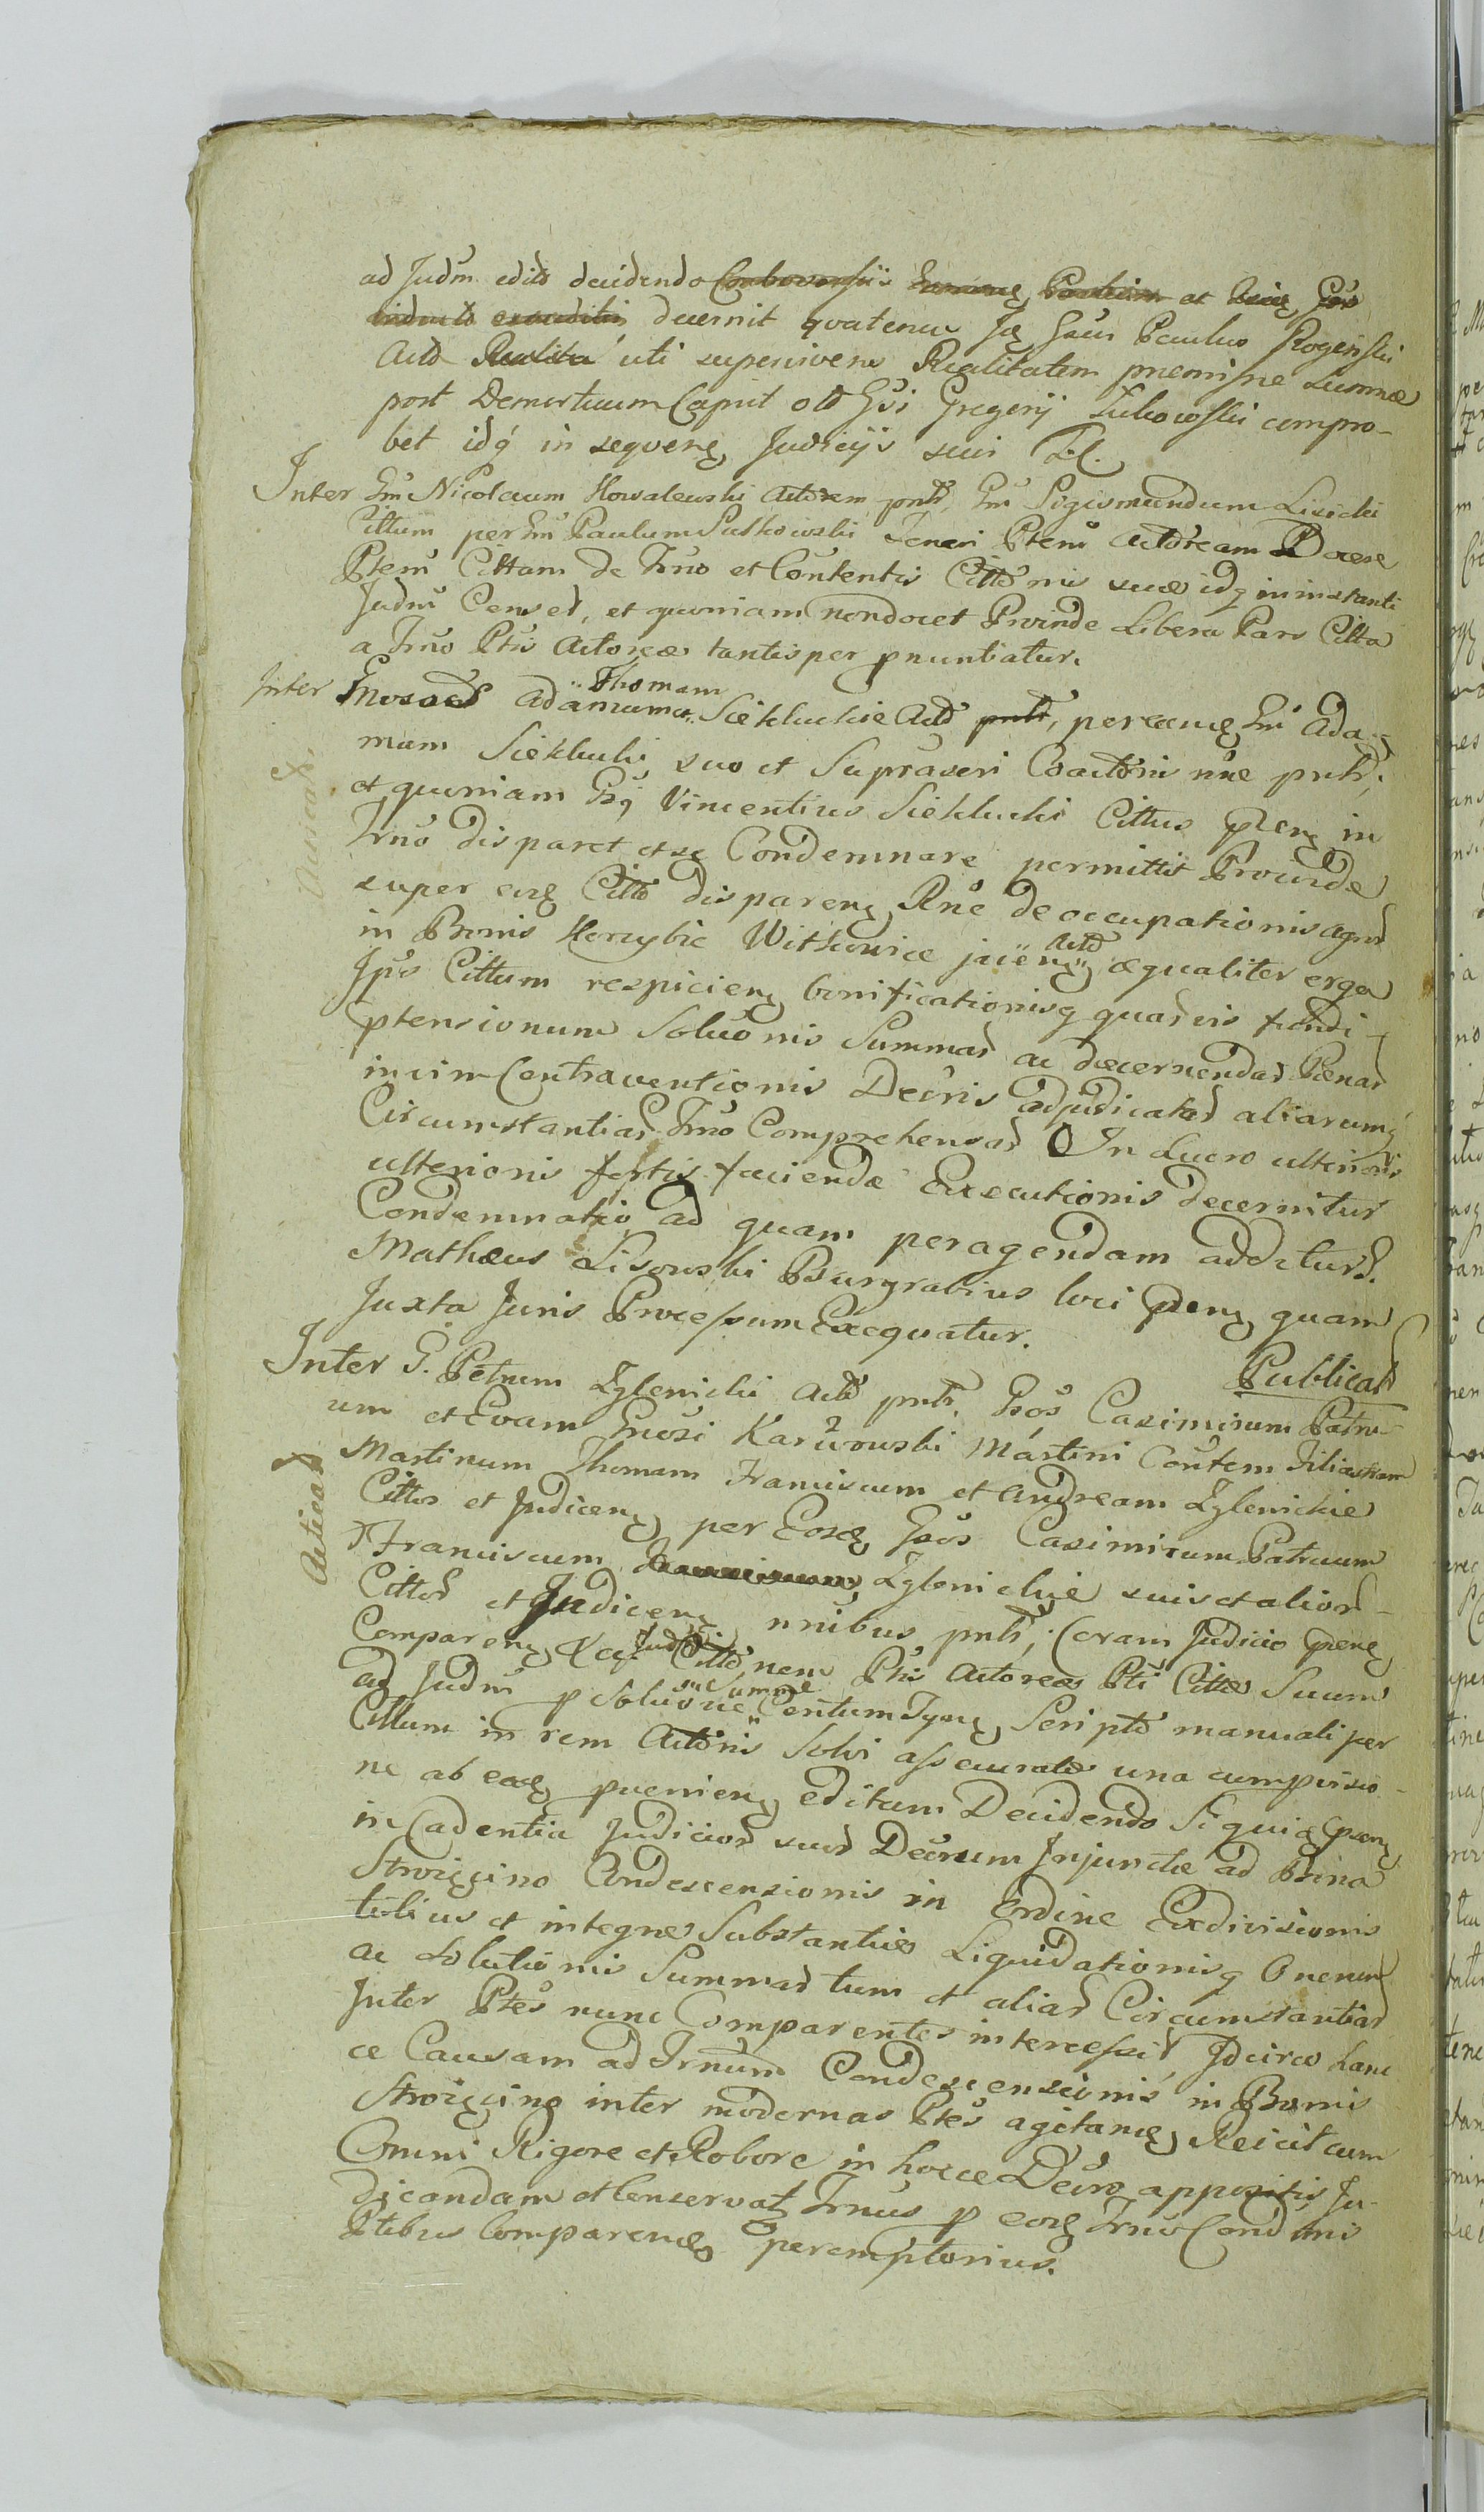 ad Judm edito decidendo Controversiis Earum Partium et
decernit qvatenus Jg Gsus Paulus Rogiński
Acto Realita uti supervivens Realitatem premissæ Summæ
post Demortuum Caput olo Gsi Gregorij Zukowski compro-
bet idq́ in seqveng Judicijs sui
Inter Gm Nicolaum Kowalewski Actorem pntr, Gm Sigismundum Lisicki
Cittum per Gm Paulum Putkowski Teneri Ptem Actoream Docere
Ptem Cittam de Trno et Contentis Cittonis suæ idq in instanti
Judm Censet, et quoniam non docet Proinde Libera Pars Citta
a Trno Ptis Actoreæ tantisper pnuntiatur.
Inter Gnosos Adamum Thomam Siekluckie Acto pntr, per eung Gm Ada-
mum Sieklucki suo et Supraseri Coactoris nne pntr,
et quoniam Gsq Vincentius Sieklucki Cittus pseng in
Trno disparet et se Condemnare permittit Proinde
super eug Citto dispareng Rne de occupationis agror
in Bonis Korzybie Witkowice jaceng Acto æqualiter erga
Ipso Cittum respicieng bonificationisq quarvis fundi
ptensionum Soluonis Summar ac decernendar Pænar
in vim Contraventionis Decris adjudicatar aliarumq́
Circumstantiar Trno Comprehensar In Lucro ulterioris
ulterioris fortis faciendæ Executionis decernitur
Condemnatio ad quam peragendam additur G.
Mathæus Lisowski Burgrabius loci pseng quam
Juxta Juris Processum Exeqvatur.
Publicat
Inter G. Petrum Zglenicki Acto pntr, Gsos Casimirum Patru-
um et Evam Gnosi Karwowski Martini Contem Filiastram
Martinum Thomam Franciscum et Andream Zglenickie
Cittos et Judiceng per Eosg Gsos Casimirum Patruum
Franciscum Zglenickie suis et alior
Cittor et Judiceng nnibus pntr, Coram Judicio pseng
Compareng Judm Cittonem Ptis Actoreæ Pti Cittæ Suum
ad Judm p Soluone sue Summe Centum Tyng Scripto manuali per
Cittum in rem Actoris Solvi assecuratæ una cum pviso-
ne ab eag pvenieng editum Decidendo Siquig pseng
in Cadentia Judicior suor Decrum Injunctæ ad Bona
Stroiggino Condescensionis in Ordine Exdivisionis
totius et integræ Substantiæ Liquidationisq Onerum
ac Solutionis Summar tum et aliar Circumstantiar
Inter Ptes nunc Comparentes intercessit Idcirco hanc
ce Causam ad Trnum Condescensionis in Bonis
Stroiggino inter modernas Ptes agitang Reicit cum
Omni Rigore et Robore in hocce Decro appositis Ju-
dicandam et Conservat Trnus p eong Trno Condnis
Ptibus Compareng peremptorius.